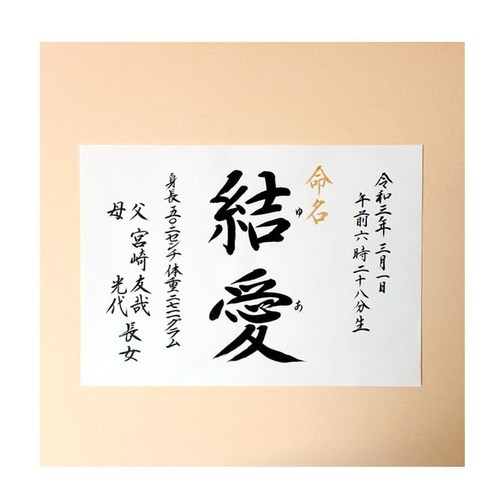 令和三年三月一日
午前六時二十八分生
命名
結愛
ゆ
あ
身長五〇.二センチ体重二七二一グラム
父 宮崎友哉
母 光代
長女